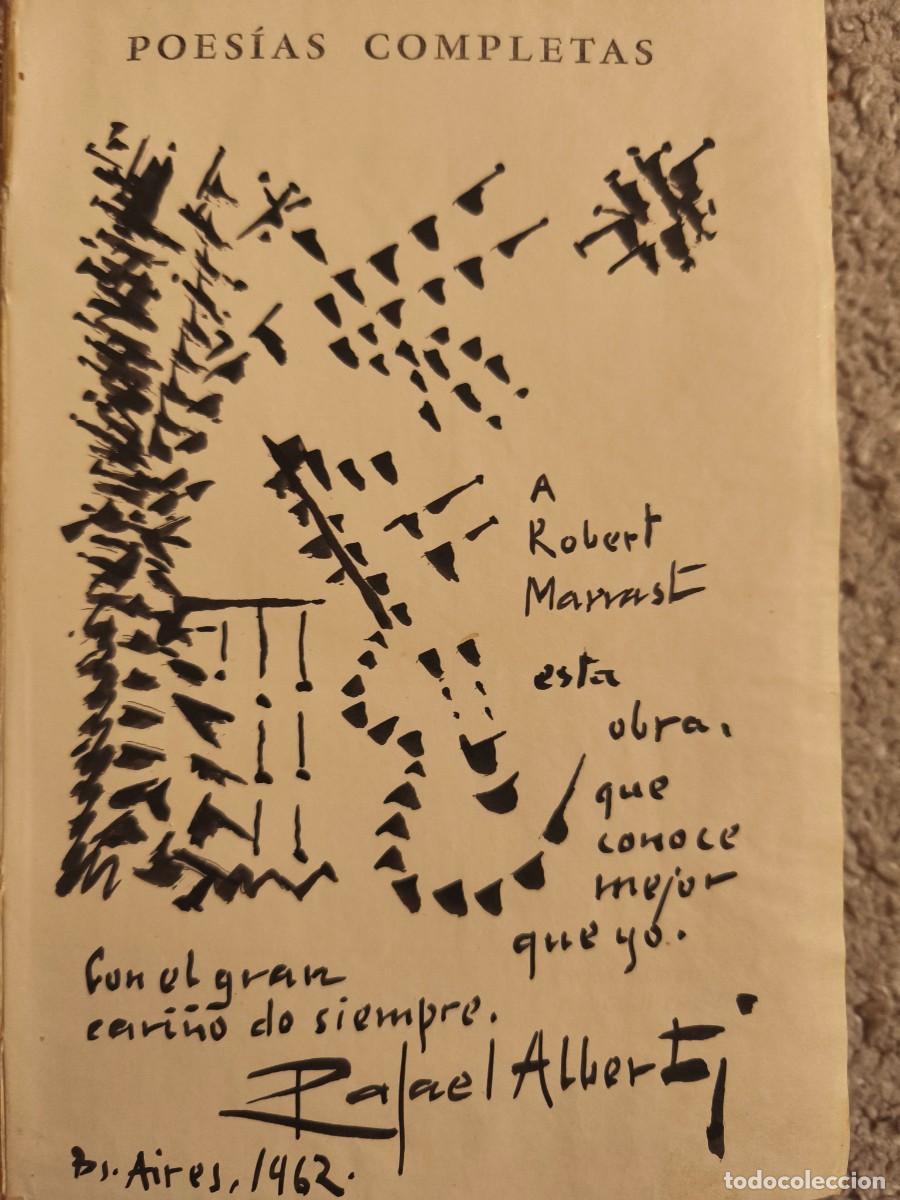 POESÍAS COMPLETAS
A
Robert
Marrast
esta
obra,
que
conoce
mejor
que yo.
Con el gran
cariño de siempre.
Rafael Alberti
Bs. Aires, 1962.
todocoleccion